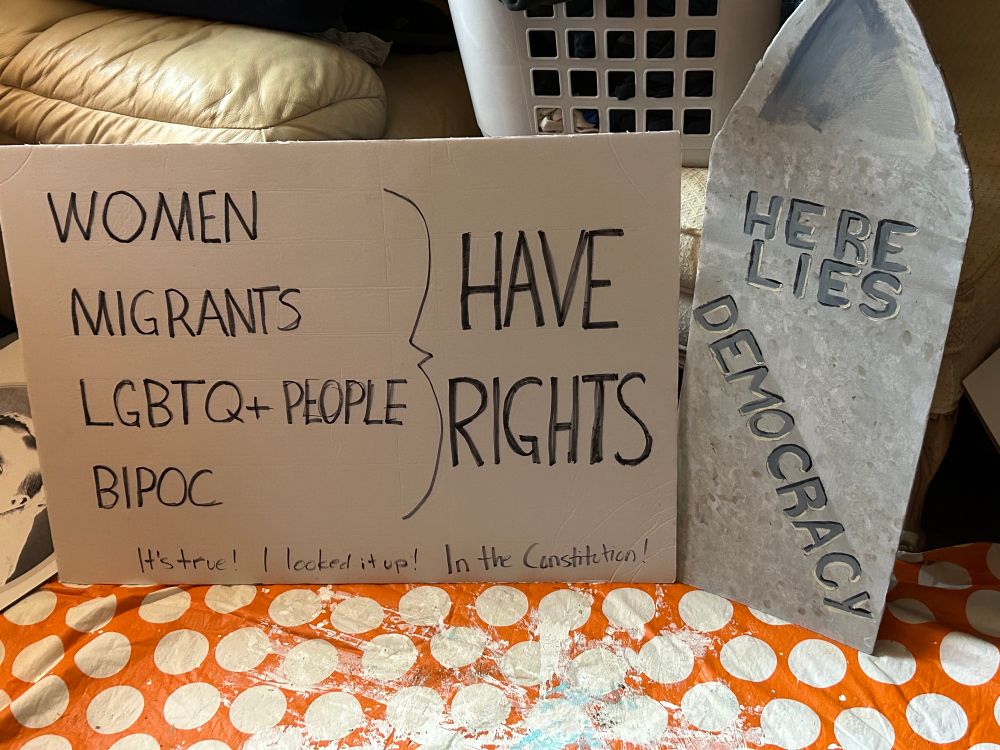 WOMEN
MIGRANTS
LGBTQ+ PEOPLE
BIPOC
HAVE
RIGHTS
It's true! I looked it up! In the Constitution!
HERE
LIES
DEMOCRACY